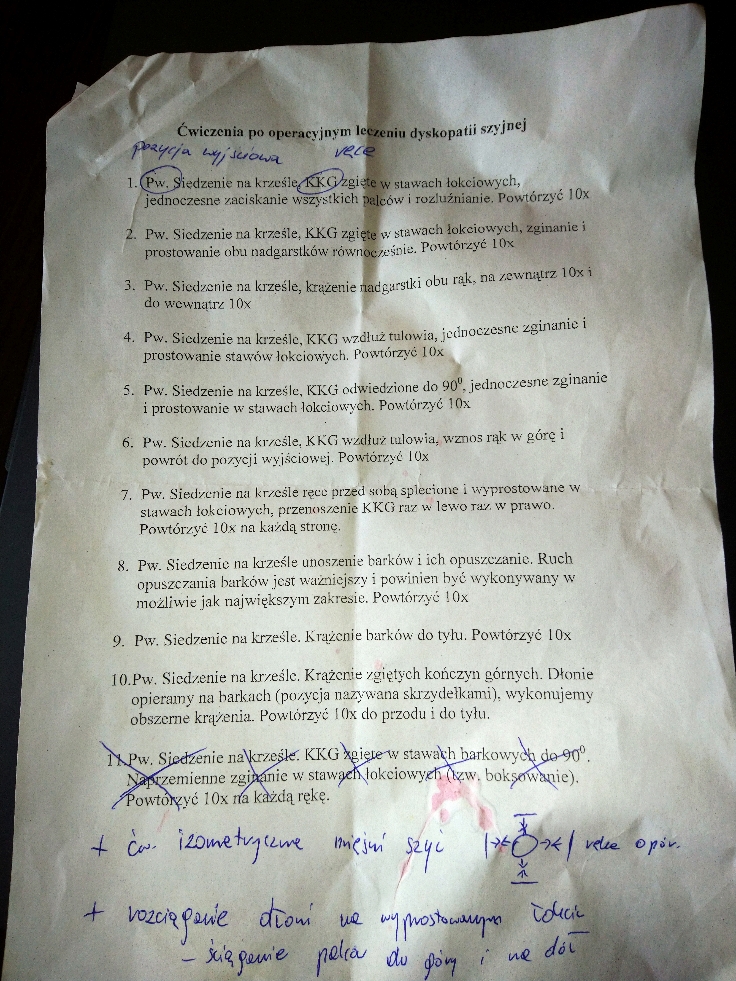 Ćwiczenia po operacyjnym leczeniu dyskopatii szyjnej
pozycja wyjściowa ręce
1. Pw. Siedzenie na krześle, KKG zgięte w stawach łokciowych,
jednoczesne zaciskanie wszystkich palców i rozluźnianie. Powtórzyć 10x
2. Pw. Siedzenie na krześle, KKG zgięte w stawach łokciowych, zginanie i
prostowanie obu nadgarstków równocześnie. Powtórzyć 10x
3. Pw. Siedzenie na krześle, krążenie nadgarstki obu rąk, na zewnątrz 10x i
do wewnątrz 10x
4. Pw. Siedzenie na krześle, KKG wzdłuż tułowia, jednoczesne zginanie i
prostowanie stawów łokciowych. Powtórzyć 10x
5. Pw. Siedzenie na krześle, KKG odwiedzione do 90⁰, jednoczesne zginanie
i prostowanie w stawach łokciowych. Powtórzyć 10x
6. Pw. Siedzenie na krześle, KKG wzdłuż tułowia, wznos rąk w górę i
powrót do pozycji wyjściowej. Powtórzyć 10x
7. Pw. Siedzenie na krześle ręce przed sobą splecione i wyprostowane w
stawach łokciowych, przenoszenie KKG raz w lewo raz w prawo.
Powtórzyć 10x na każdą stronę.
8. Pw. Siedzenie na krześle unoszenie barków i ich opuszczanie. Ruch
opuszczania barków jest ważniejszy i powinien być wykonywany w
możliwie jak największym zakresie. Powtórzyć 10x
9. Pw. Siedzenie na krześle. Krążenie barków do tyłu. Powtórzyć 10x
10.Pw. Siedzenie na krześle. Krążenie zgiętych kończyn górnych. Dłonie
opieramy na barkach (pozycja nazywana skrzydełkami), wykonujemy
obszerne krążenia. Powtórzyć 10x do przodu i do tyłu.
11.Pw. Siedzenie na krześle. KKG zgięte w stawach barkowych do 90⁰.
Naprzemienne zginanie w stawach łokciowych (tzw. boksowanie).
Powtórzyć 10x na każdą rękę.
+ ćw. izometryczne mięśni szyi ręka opór.
+ rozciąganie dłoni na wyprostowanym łokciu
- ściąganie palca do góry i na dół